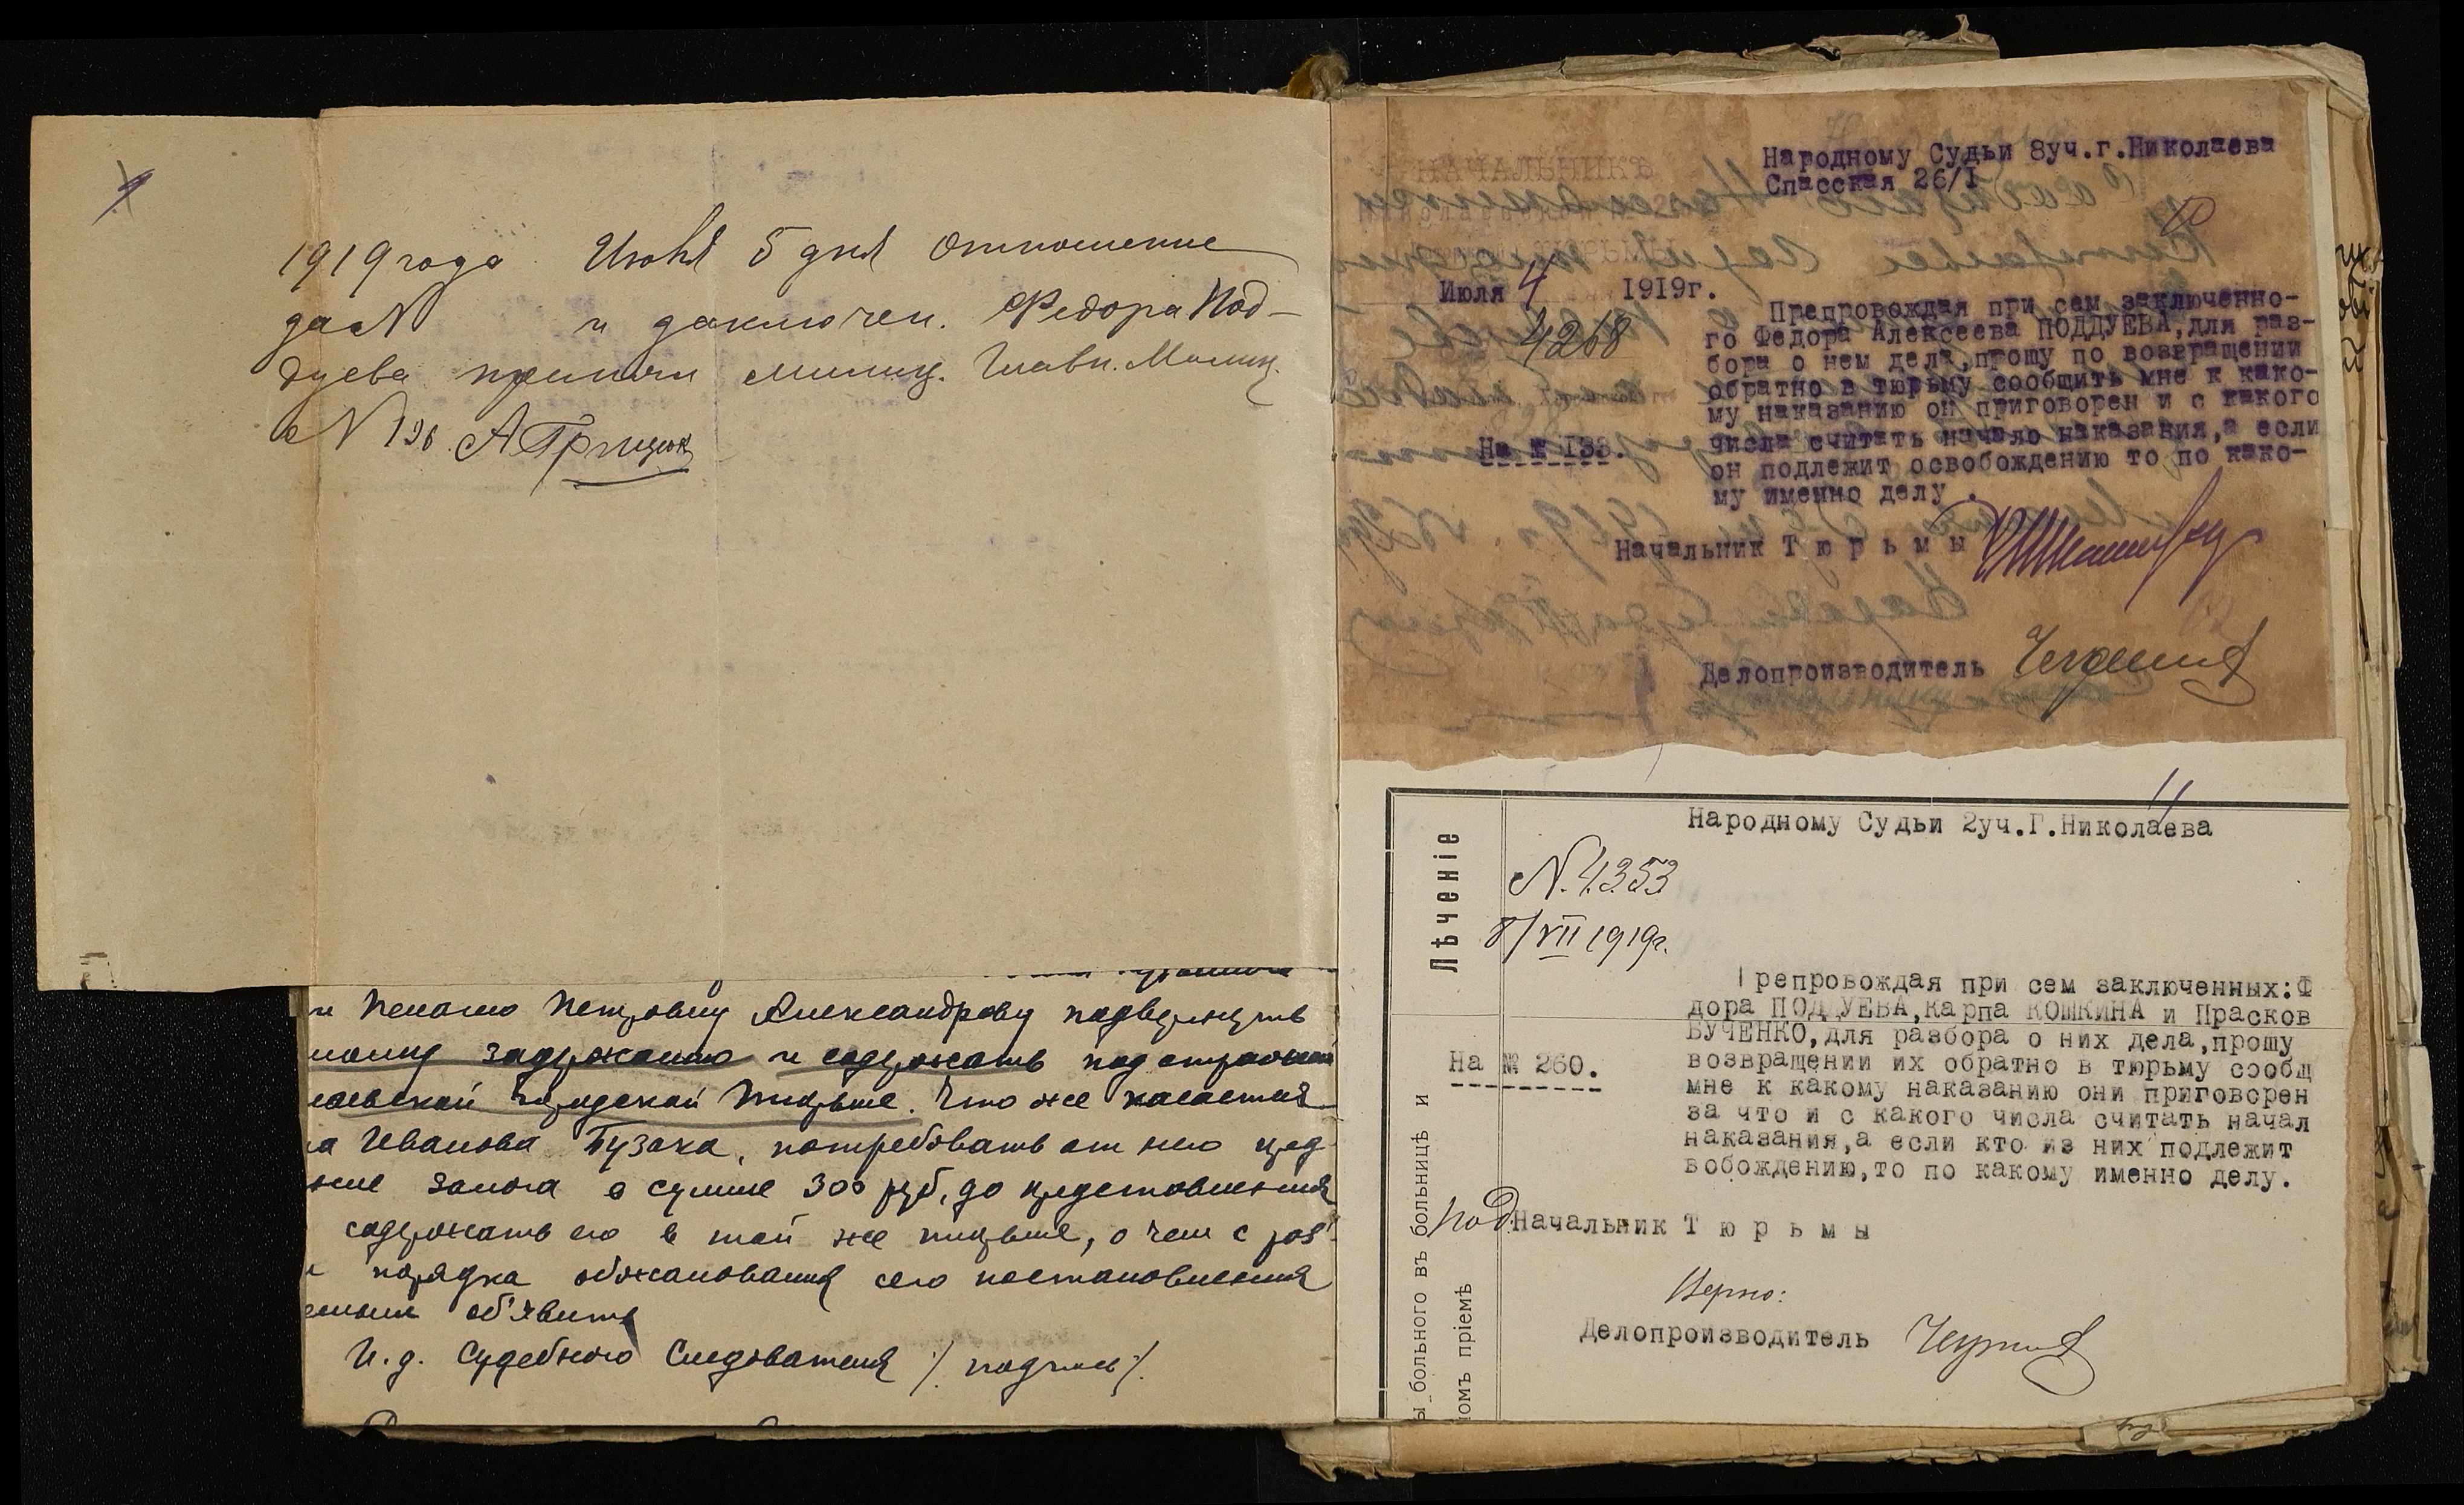 1919 года Июня 5 дня отношение
за № и заключен. Федора Под-
дуева принял милиц. Главн. Милиц.
№ 196 А Грицюк
и Пелагею Петровну Александрову подвергнуть
задержанию и содержать под стражей
городской тюрьме. Что же касается
Иванова Бузака, потребовать от него пред-
залога в сумме 300 руб, до представления
содержать его в той же тюрьме, о чем с раз'-
порядка обжалования сего постановления
об'явить
И.д. Судебного Следователя /. подпись /.
Народному Судьи 8уч.г.Николаева
Спасская 26/I
10
НАЧАЛЬНИКЪ
Июля 4 1919г.
4268
Препровождая при сем заключенно-
го Федора Алексеева ПОДДУЕВА,для раз-
бора о нем дела,прошу по возвращении
обратно в тюрьму сообщить мне к како-
му наказанию он приговорен и с какого
числа считать начало наказания,а если
он подлежит освобождению то по како-
му именно делу .
На № 133.
Начальник Т ю р ь м ы
Делопроизводитель
11
Народному Судьи 2уч.Г.Николаева
Лѣченіе
N. 4353
8/VII 1919г.
репровождая при сем заключенных:Ф
дора ПОДДУЕВА,Карпа КОШКИНА и Прасков
БУЧЕНКО,для разбора о них дела,прошу
возвращении их обратно в тюрьму сообщ
мне к какому наказанию они приговорен
за что и с какого числа считать начал
наказания,а если кто из них подлежит
вобождению,то по какому именно делу.
На № 260.
под Начальник Т ю р ь м ы
Верно:
Делопроизводитель
ы больного въ больницѣ и
номъ пріемѣ